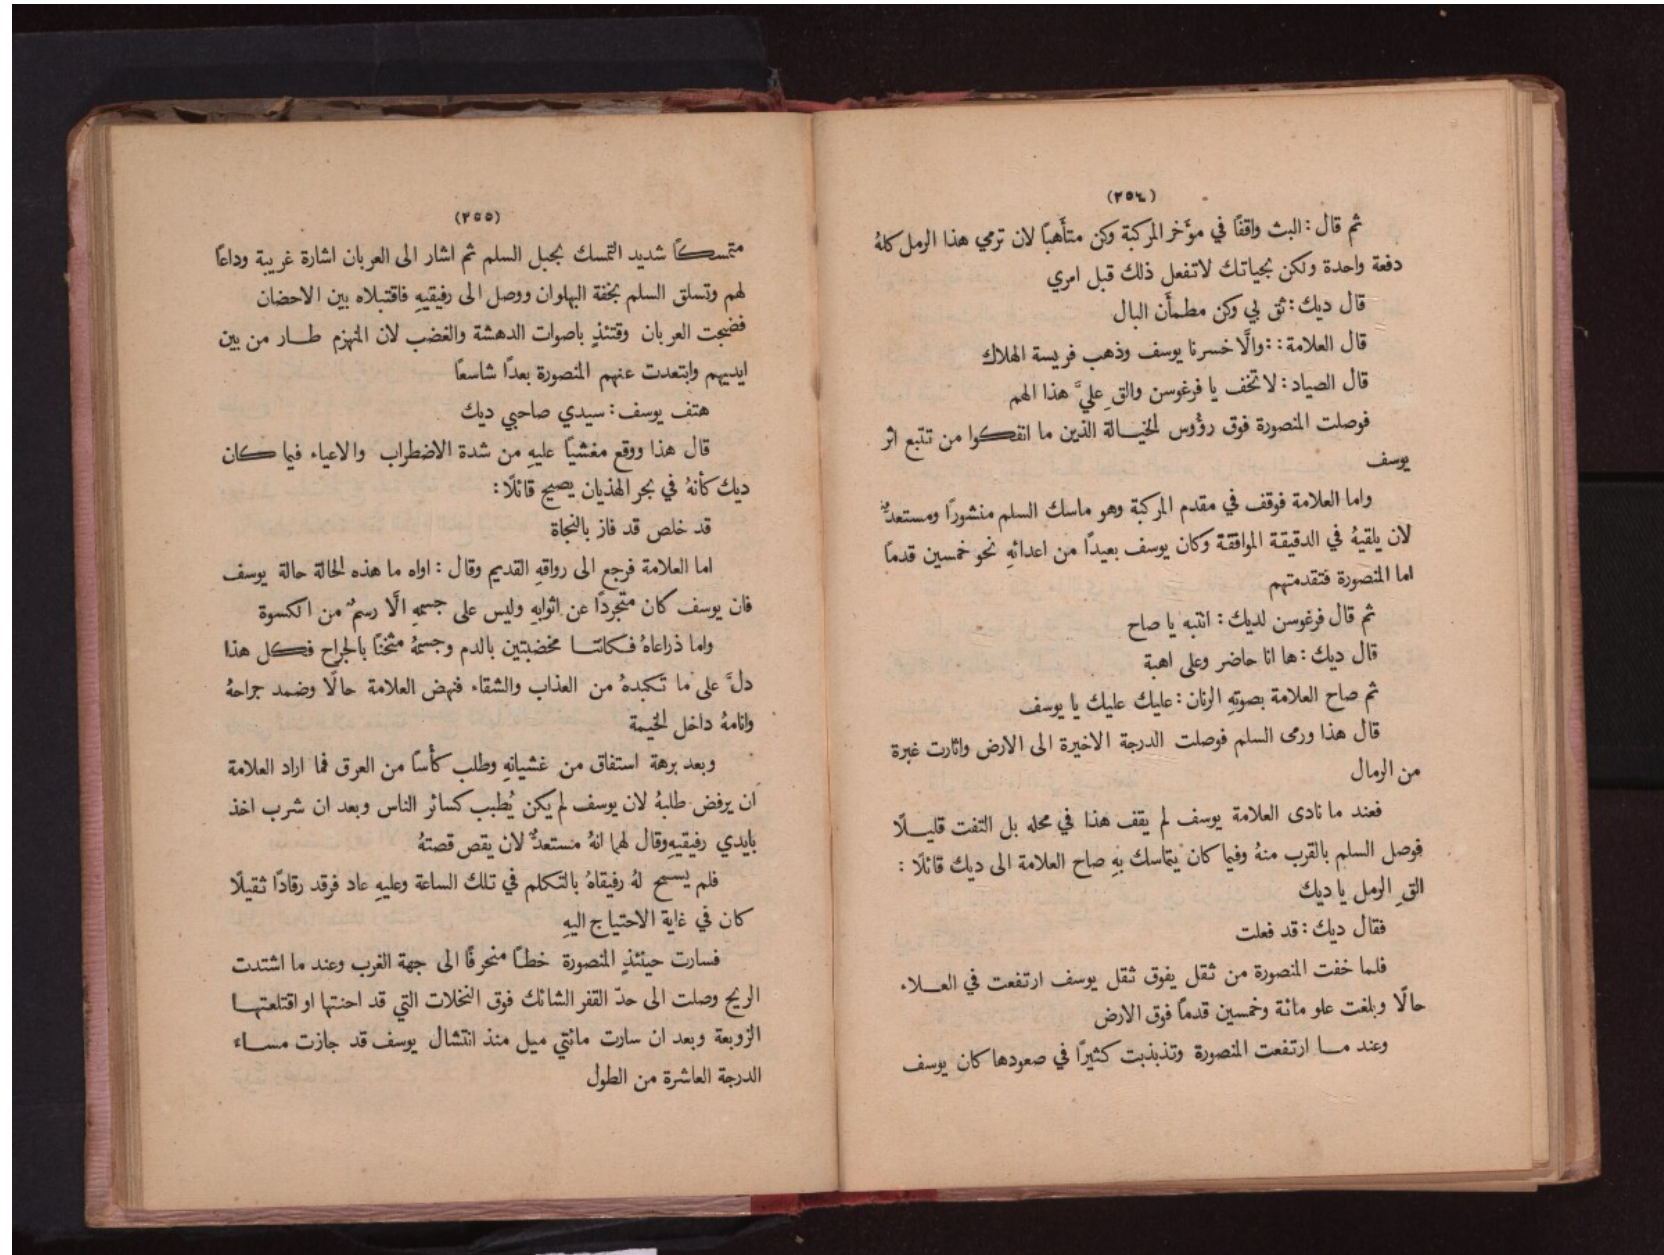 (٢٥٤)
ثم قال: البث واقفًا في مؤَخر المركبة وكن متأَهبًا لان ترمي هذا الرمل كلهُ
دفعة واحدة ولكن بحياتك لا تفعل ذلك قبل امري
قال ديك: ثق بي وكن مطمأَن البال
قال العلامة:: والَّا خسرنا يوسف وذهب فريسة الهلاك
قال الصياد: لا تخف يا فرغوسن والقِ عليَّ هذا الهم
فوصلت المنصورة فوق رؤُوس الخيالة الذين ما انفكوا من تتبع اثر
يوسف
واما العلامة فوقف في مقدم المركبة وهو ماسك السلم منشورًا ومستعدٌّ
لان يلقيهُ في الدقيقة الموافقة وكان يوسف بعيدًا من اعدائهِ نحو خمسين قدمًا
اما المنصورة فتقدمتهم
ثم قال فرغوسن لديك: انتبه يا صاح
قال ديك: ها انا حاضر وعلى اهبة
ثم صاح العلامة بصوتهِ الرنان: عليك عليك يا يوسف
قال هذا ورمى السلم فوصلت الدرجة الاخيرة الى الارض واثارت غبرة
من الرمال
فعند ما نادى العلامة يوسف لم يقف هذا في محله بل التفت قليلًا
فوصل السلم بالقرب منهُ وفيما كان يتماسك بهِ صاح العلامة الى ديك قائلًا:
القِ الرمل يا ديك
فقال ديك: قد فعلت
فلما خفت المنصورة من ثقل يفوق ثقل يوسف ارتفعت في العلاء
حالًا وبلغت علو مائة وخمسين قدمًا فوق الارض
وعند ما ارتفعت المنصورة وتذبذبت كثيرًا في صعودها كان يوسف
(٢٥٥)
متمسكًا شديد التمسك بحبل السلم ثم اشار الى العربان اشارة غريبة وداعًا
لهم وتسلق السلم بخفة البهلوان ووصل الى رفيقيهِ فاقتبلاه بين الاحضان
فضجت العربان وقتئذٍ باصوات الدهشة والغضب لان المنهزم طار من بين
ايديهم وابتعدت عنهم المنصورة بعدًا شاسعًا
هتف يوسف: سيدي صاحبي ديك
قال هذا ووقع مغشيًا عليهِ من شدة الاضطراب والاعياء فيما كان
ديك كأنهُ في بحر الهذيان يصيح قائلًا:
قد خلص قد فاز بالنجاة
اما العلامة فرجع الى رواقهِ القديم وقال: اواه ما هذه الحالة حالة يوسف
فان يوسف كان متجردًا عن اثوابهِ وليس على جسمهِ الَّا رسمٌ من الكسوة
واما ذراعاهُ فكانتا مخضبتين بالدم وجسمهُ مثخنًا بالجراح فكل هذا
دلَّ على ما تكبدهُ من العذاب والشقاء فنهض العلامة حالًا وضمد جراحهُ
وانامهُ داخل الخيمة
وبعد برهة استفاق من غشيانهِ وطلب كأسًا من العرق فما اراد العلامة
ان يرفض طلبهُ لان يوسف لم يكن يُطبب كسائر الناس وبعد ان شرب اخذ
بايدي رفيقيهِ وقال لهما انهُ مستعدٌّ لان يقص قصتهُ
فلم يسمح لهُ رفيقاهُ بالتكلم في تلك الساعة وعليهِ عاد فرقد رقادًا ثقيلًا
كان في غاية الاحتياج اليهِ
فسارت حينئذٍ المنصورة خطًا منحرفًا الى جهة الغرب وعند ما اشتدت
الريح وصلت الى حدّ القفر الشائك فوق النخلات التي قد احنتها او اقتلعتها
الزوبعة وبعد ان سارت مائتي ميل منذ انتشال يوسف قد جازت مساء
الدرجة العاشرة من الطول